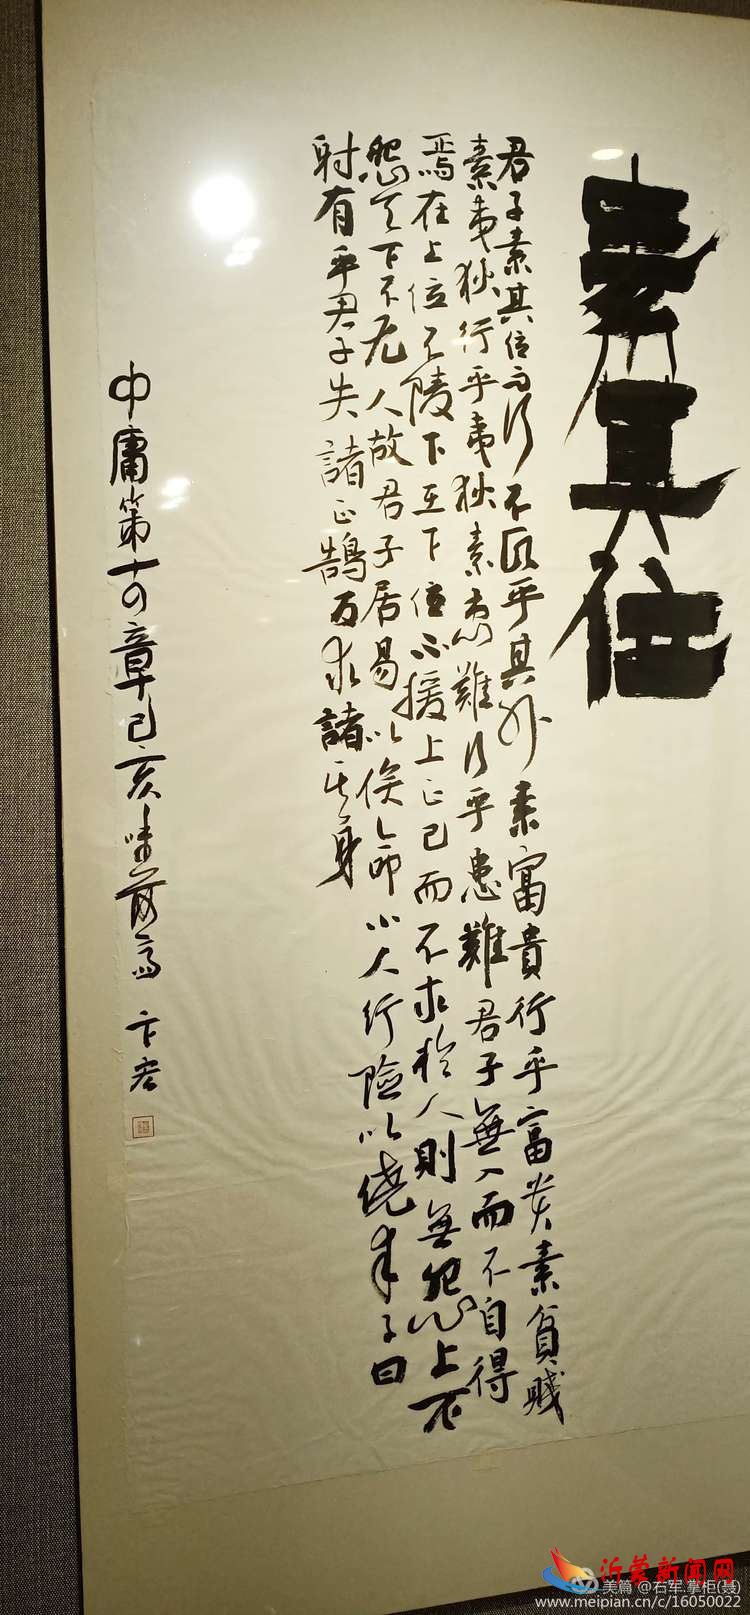 素其位
君子素其位而行不願乎其外素富貴行乎富貴素貧賤
素夷狄行乎夷狄素患難行乎患難君子無入而不自得
焉在上位不陵下在下位不援上正己而不求於人則無怨上不
怨天下不尤人故君子居易以俟命小人行險以徼幸子曰
射有乎君子失諸正鵠反求諸其身
中庸第十四章己亥
沂蒙新闻网
美篇 @石军.掌柜(聂)
www.meipian.cn/c/16050022